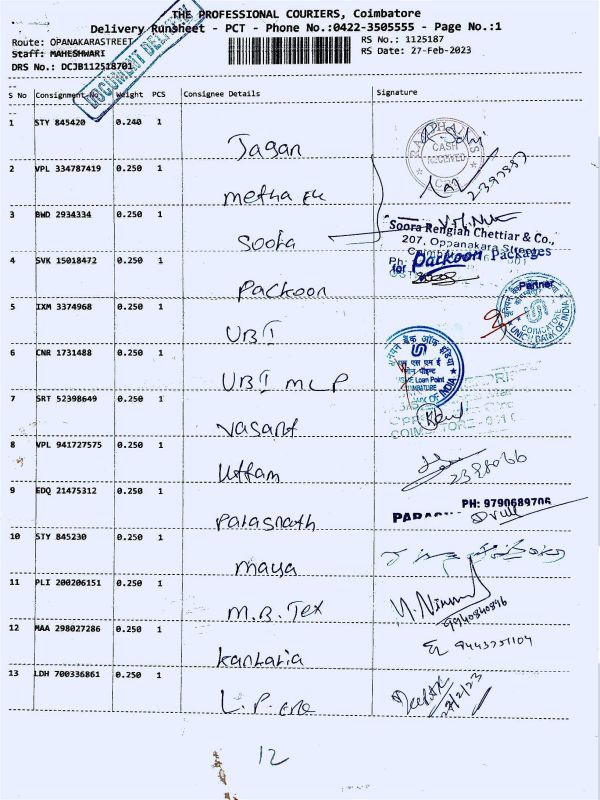 THE PROFESSIONAL COURIERS, Coimbatore
Delivery Runsheet - PCT - Phone No.:0422-3505555 - Page No.:1
Route: OPANAKARASTREET
RS No.: 1125187
Staff: MAHESHWARI
RS Date: 27-Feb-2023
DRS No.: DCJB112518701
DOCUMENT DELIVERY
S No Consignment No Weight PCS Consignee Details Signature
1 STY 845420 0.240 1 Jagan
CASH RECEIVED
2 VPL 334787419 0.250 1 metha
3 BWD 2934334 0.250 1 Soora
Soora Rengiah Chettiar & Co.,
207, Oppanakara Street
4 SVK 15018472 0.250 1 Packoon
for Packoon Packages
Partner
5 IXM 3374968 0.250 1 UBI
COIMBATORE
UNION BANK OF INDIA
6 CNR 1731488 0.250 1 UBI MLP
यूनियन बैंक ऑफ इंडिया
Loan Point
7 SRT 52398649 0.250 1 Vasant
8 VPL 941727575 0.250 1 Uttam
9 EDQ 21475312 0.250 1 Parasnath
PH: 9790689706
10 STY 845230 0.250 1 maya
11 PLI 200206151 0.250 1 M.B. Tex
9940840896
12 MAA 298027286 0.250 1 Kantaria
13 LDH 700336861 0.250 1 L.P.
27/2/23
12